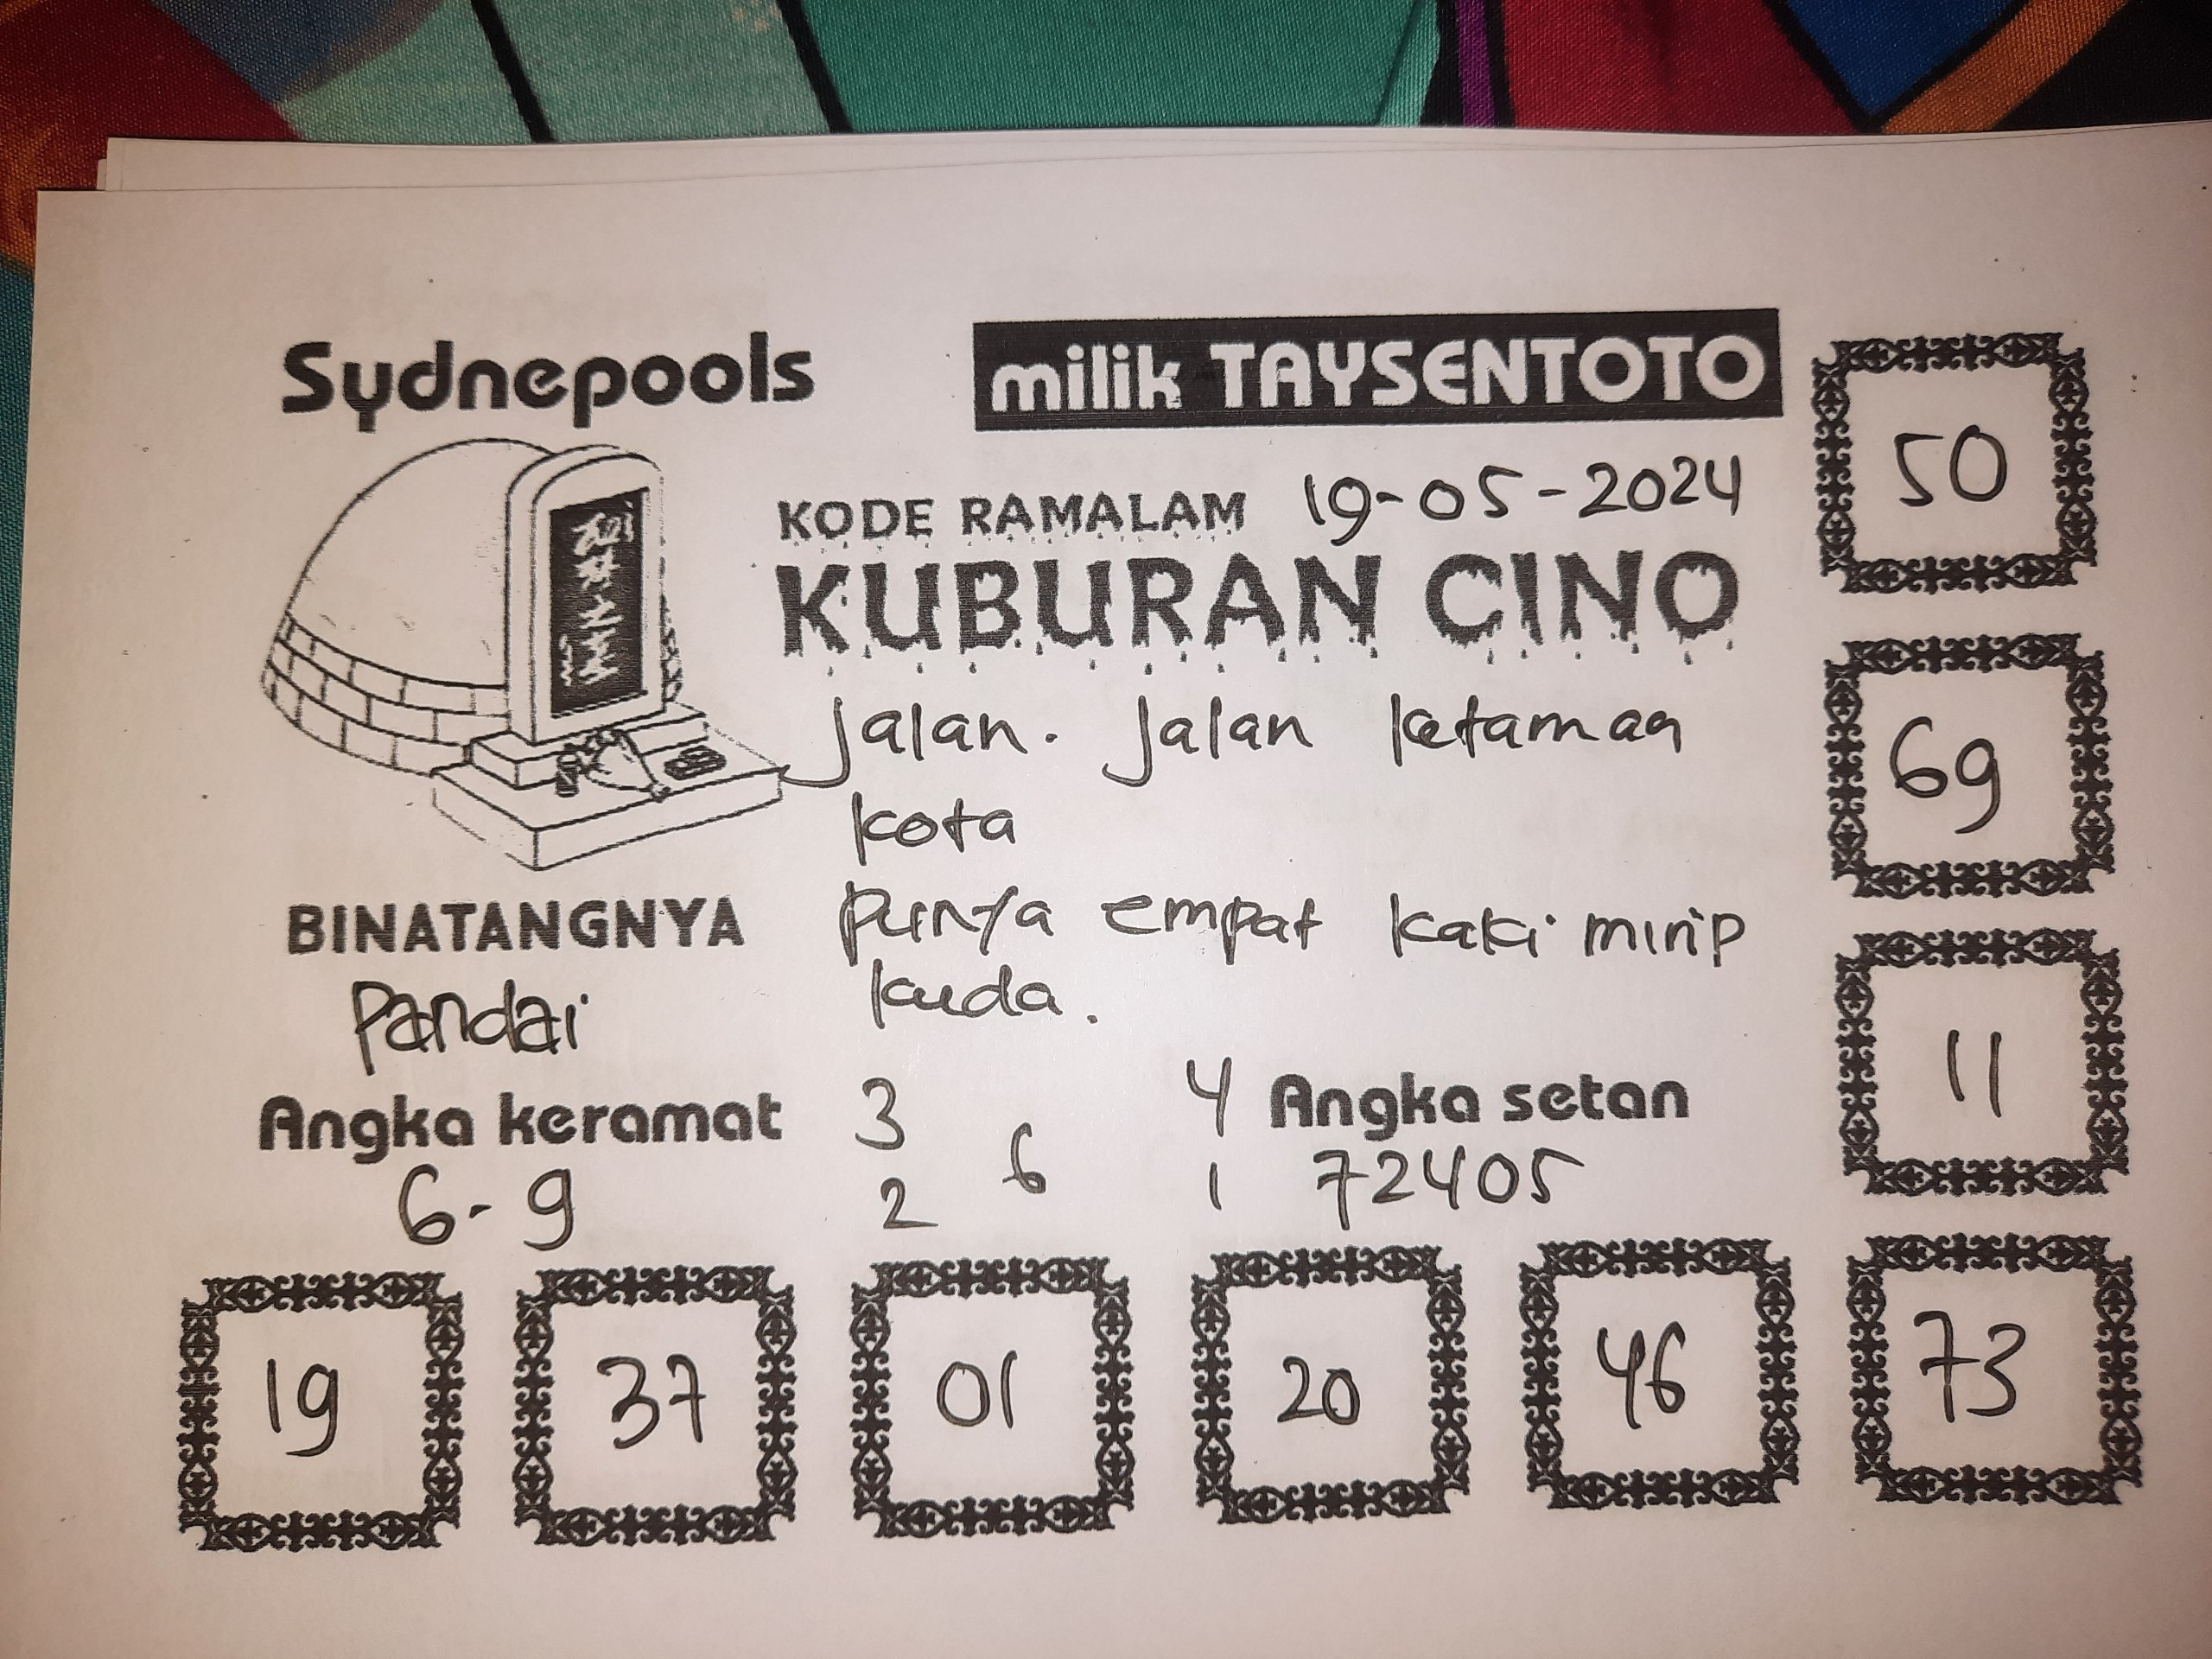 Sydnepools
milik TAYSENTOTO
KODE RAMALAM 19-05-2024
KUBURAN CINO
Jalan. Jalan ketaman
kota
BINATANGNYA
Pandai
Punya empat kaki mirip
kuda.
Angka keramat
6-9
3 4
6
2 1
Angka setan
72405
50
69
11
19 37 01 20 46 73